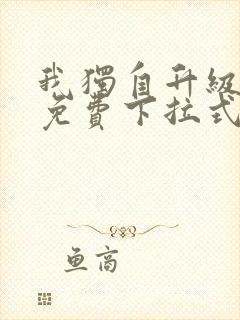 我獨自升級
免費下拉式
鱼高